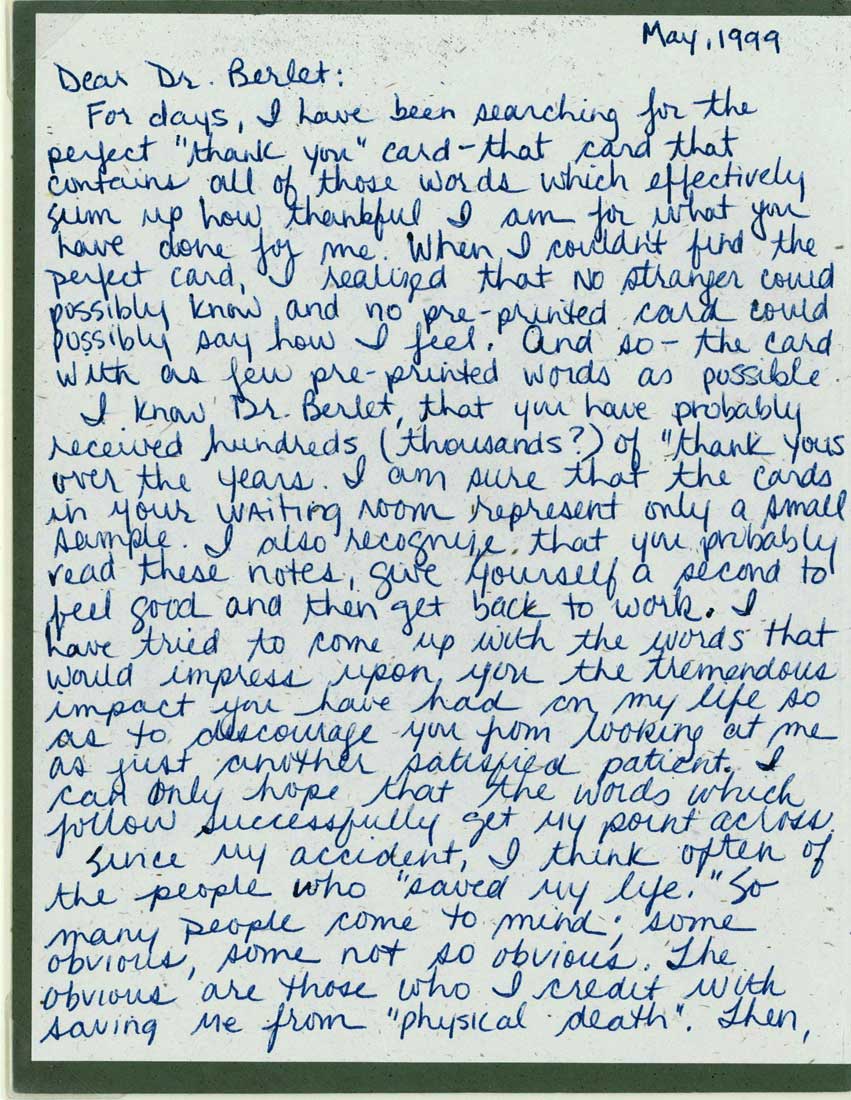 May, 1999
Dear Dr. Berlet:
For days, I have been searching for the
perfect "thank you" card - that card that
contains all of those words which effectively
sum up how thankful I am for what you
have done for me. When I couldn't find the
perfect card, I realized that no stranger could
possibly know and no pre-printed card could
possibly say how I feel. And so - the card
with as few pre-printed words as possible.
I know Dr. Berlet, that you have probably
received hundreds (thousands?) of "thank yous
over the years. I am sure that the cards
in your waiting room represent only a small
sample. I also recognize that you probably
read these notes, give yourself a second to
feel good and then get back to work. I
have tried to come up with the words that
would impress upon you the tremendous
impact you have had on my life so
as to discourage you from looking at me
as just another satisfied patient. I
can only hope that the words which
follow successfully get my point across.
Since my accident, I think often of
the people who "saved my life." So
many people come to mind; some
obvious, some not so obvious. The
obvious are those who I credit with
saving me from "physical death". Then,